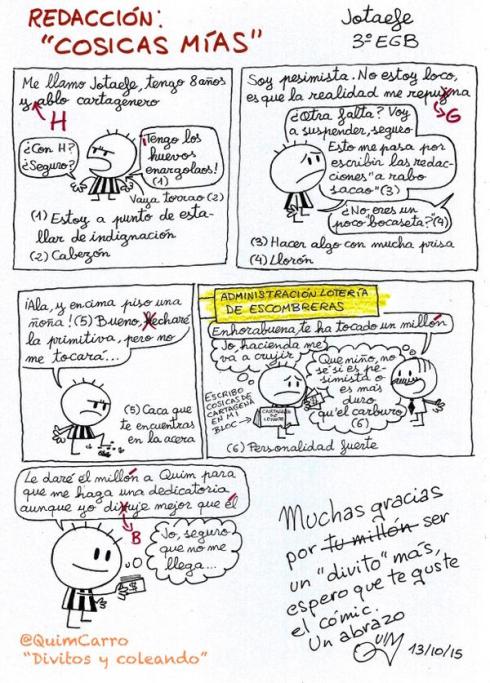 REDACCIÓN:
"COSICAS MÍAS"
Jotaefe
3º EGB
Me llamo Jotaefe, tengo 8 años
y ablo cartagenero
H
¿Con H?
¿Seguro?
¡Tengo los
huevos
enargolaos!
(1)
Vaya torrao (2)
(1) Estoy a punto de esta-
llar de indignación
(2) Cabezón
Soy pesimista. No estoy loco,
es que la realidad me repuxna
G
¿Otra falta? Voy
a suspender, segueo
Esto me pasa por
escribir las redac-
ciones "a rabo
sacao" (3)
¿No eres un
poco "bocaseta"? (4)
(3) Hacer algo con mucha prisa
(4) Llorón
¡Ala, y encima piso una
ñoña! (5) Bueno, hecharé
la primitiva, pero no
me tocará...
(5) Caca que
te encuentras
en la acera
ADMINISTRACIÓN LOTERÍA
DE ESCOMBRERAS
Enhorabuena, te ha tocado un millón
Jo, hacienda me
va a crujir
Que niño, no
sé si es pe-
simista o
es más
duro
qu'el carburo
(6)
ESCRIBO
COSICAS DE
CARTAGENA
EN MI
BLOC
(6) Personalidad fuerte
Le daré el millón a Quim para
que me haga una dedicatoria
aunque yo divuje mejor que él
B
Jo, seguro
que no me
llega...
Muchas gracias
por tu millón ser
un "divito" más,
espero que te guste
el cómic.
Un abrazo
QUIM
13/10/15
@QuimCarro
"Divitos y coleando"